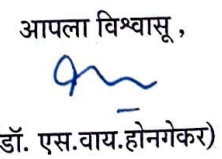 आपला विश्वासू ,
डॉ. एस.वाय.होनगेकर)